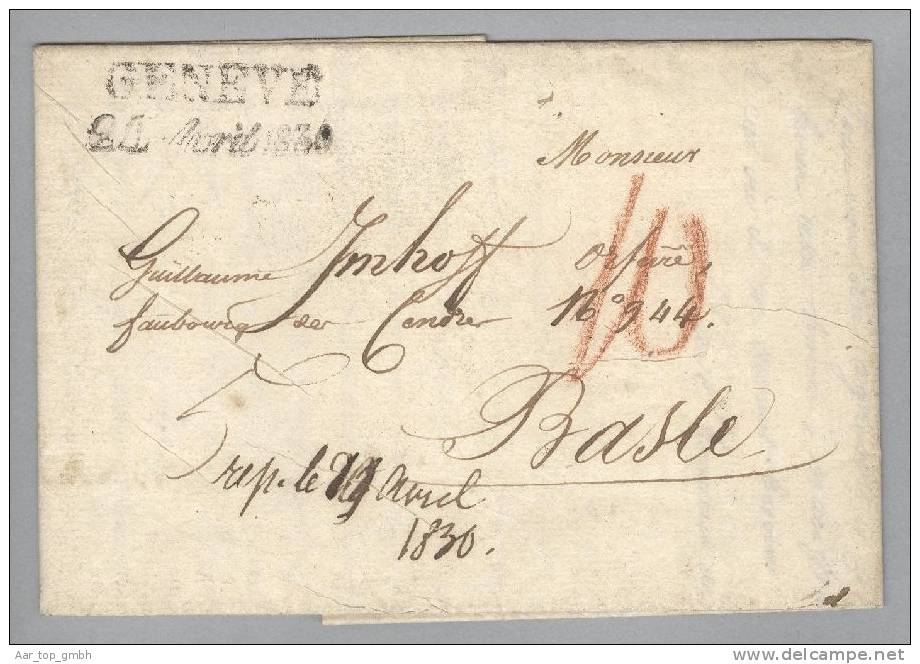 GENEVE
24 Avril 1830
Monsieur
Guillaume Imhoff orfevre,
faubourg des Cendres No 944.
10
Basle
rep. le Avril
1830.
Aar_top_gmbh
www.delcampe.net